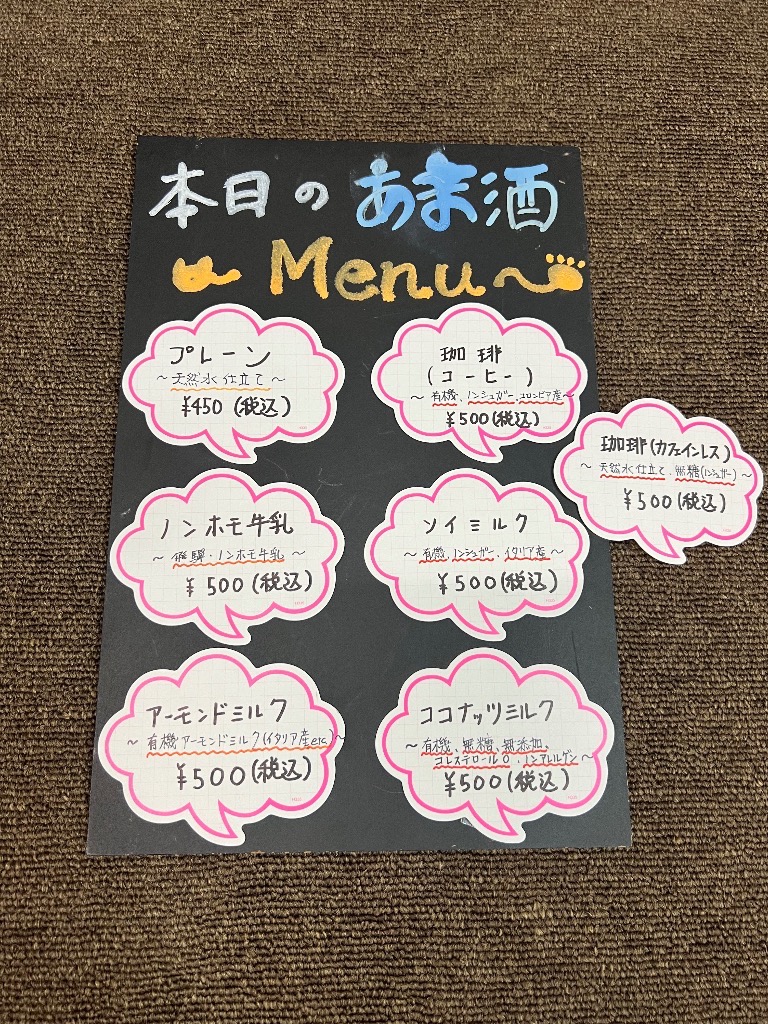 本日のあま酒
Menu～
プレーン
～天然水仕立て～
¥450(税込)
珈琲
(コーヒー)
～有機、ノンシュガー、コロンビア産～
¥500(税込)
珈琲(カフェインレス)
～天然水仕立て、無糖(ノンシュガー)～
¥500(税込)
ノンホモ牛乳
～飛騨・ノンホモ牛乳～
¥500(税込)
ソイミルク
～有機、ノンシュガー、イタリア産～
¥500(税込)
アーモンドミルク
～有機アーモンドミルク(イタリア産etc)～
¥500(税込)
ココナッツミルク
～有機、無糖、無添加、
コレステロール0、ノンアレルゲン～
¥500(税込)